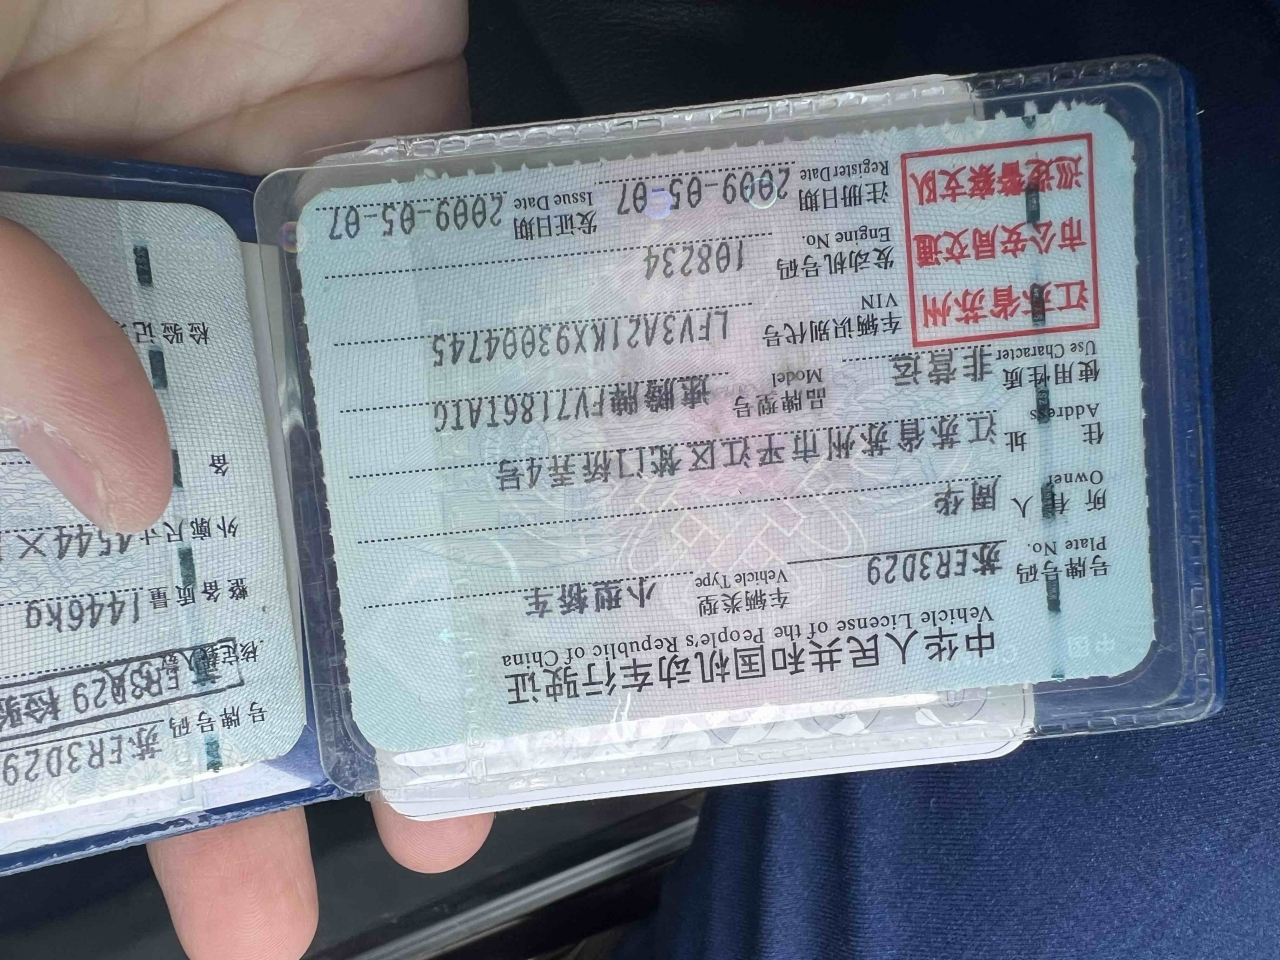 中华人民共和国机动车行驶证
Vehicle License of the People's Republic of China
号牌号码 苏ER3D29 车辆类型 小型轿车
Plate No. Vehicle Type
所有人 周华
Owner
住址 江苏省苏州市平江区娄门桥弄4号
Address
使用性质 非营运 品牌型号 速腾牌FV7186TATG
Use Character Model
江苏省苏州
市公安局交通
巡逻警察支队
车辆识别代号 LFV3A21KX93004745
VIN
发动机号码 108234
Engine No.
注册日期 2009-05-07 发证日期 2009-05-07
Register Date Issue Date
号牌号码 苏ER3D29
核定载人数
ER3D29 检验
整备质量 1446kg
外廓尺寸 4544×
备
检验记